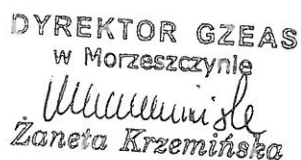 DYREKTOR GZEAS
w Morzeszczynie
Żaneta Krzemińska